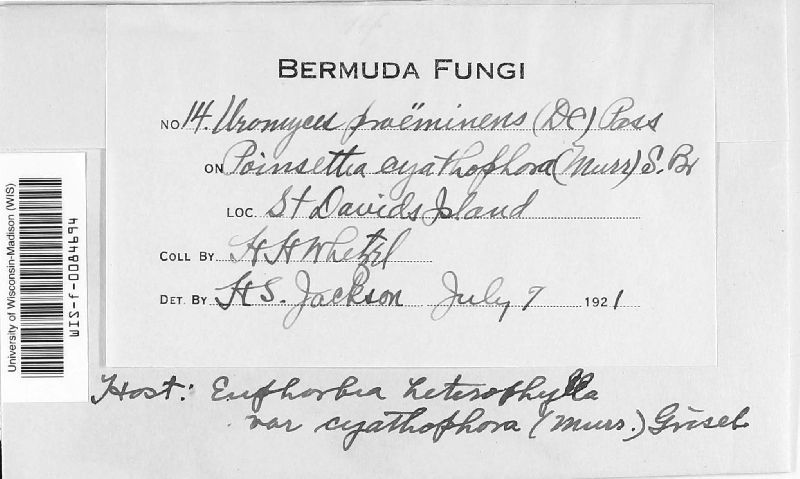 BERMUDA FUNGI
NO 14. Uromyces proëminens (DC) Pass
ON Poinsettia cyathophora (Murr) S. Br
LOC. St Davids Island
COLL BY H H Whetzel
DET. BY H S. Jackson July 7 1921
Host: Euphorbia heterophylla
var cyathophora (Murr.) Griseb
University of Wisconsin-Madison (WIS)
WIS-f-0084694